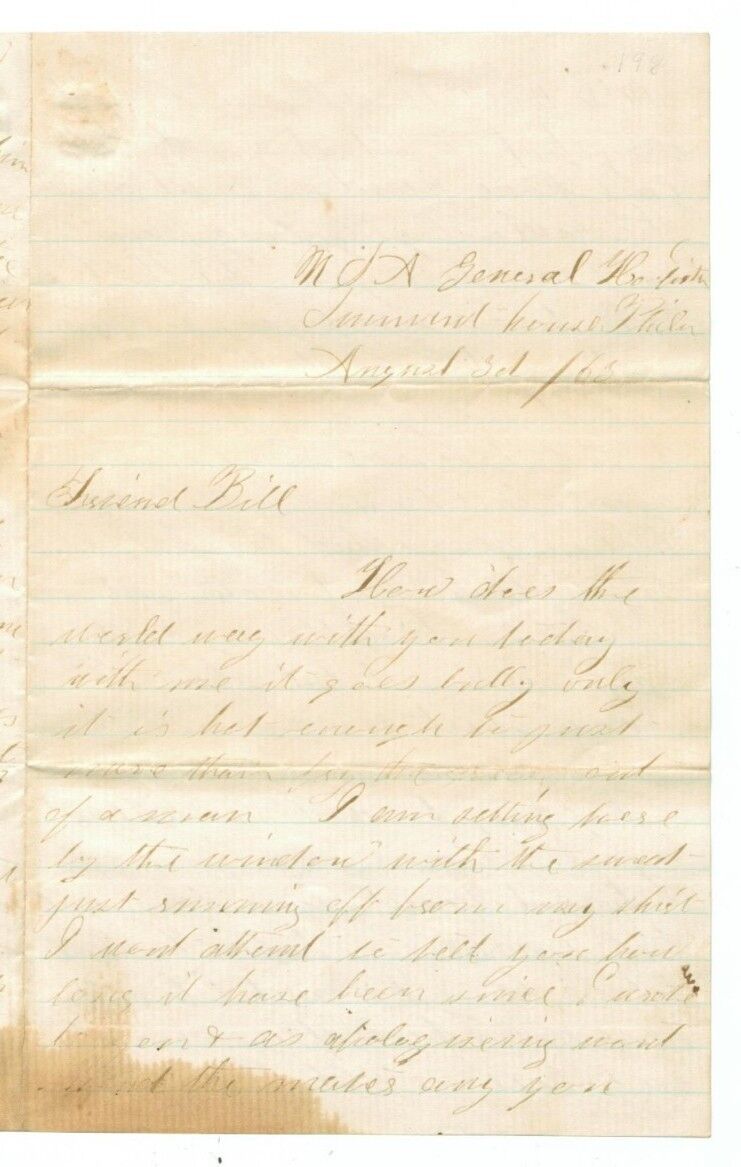 198
M S A General Hospital
Summit house Phila
August 3d /63
Friend Bill
How does the
world wag with you today
with me it goes bully only
it is hot enough to just
more than fry the grease out
of a man I am setting here
by the window with the sweat
just running off from my shirt
I wont attemt to tell you how
long it have been since I wrote
to you & as apologuising wont
mend the mater any you